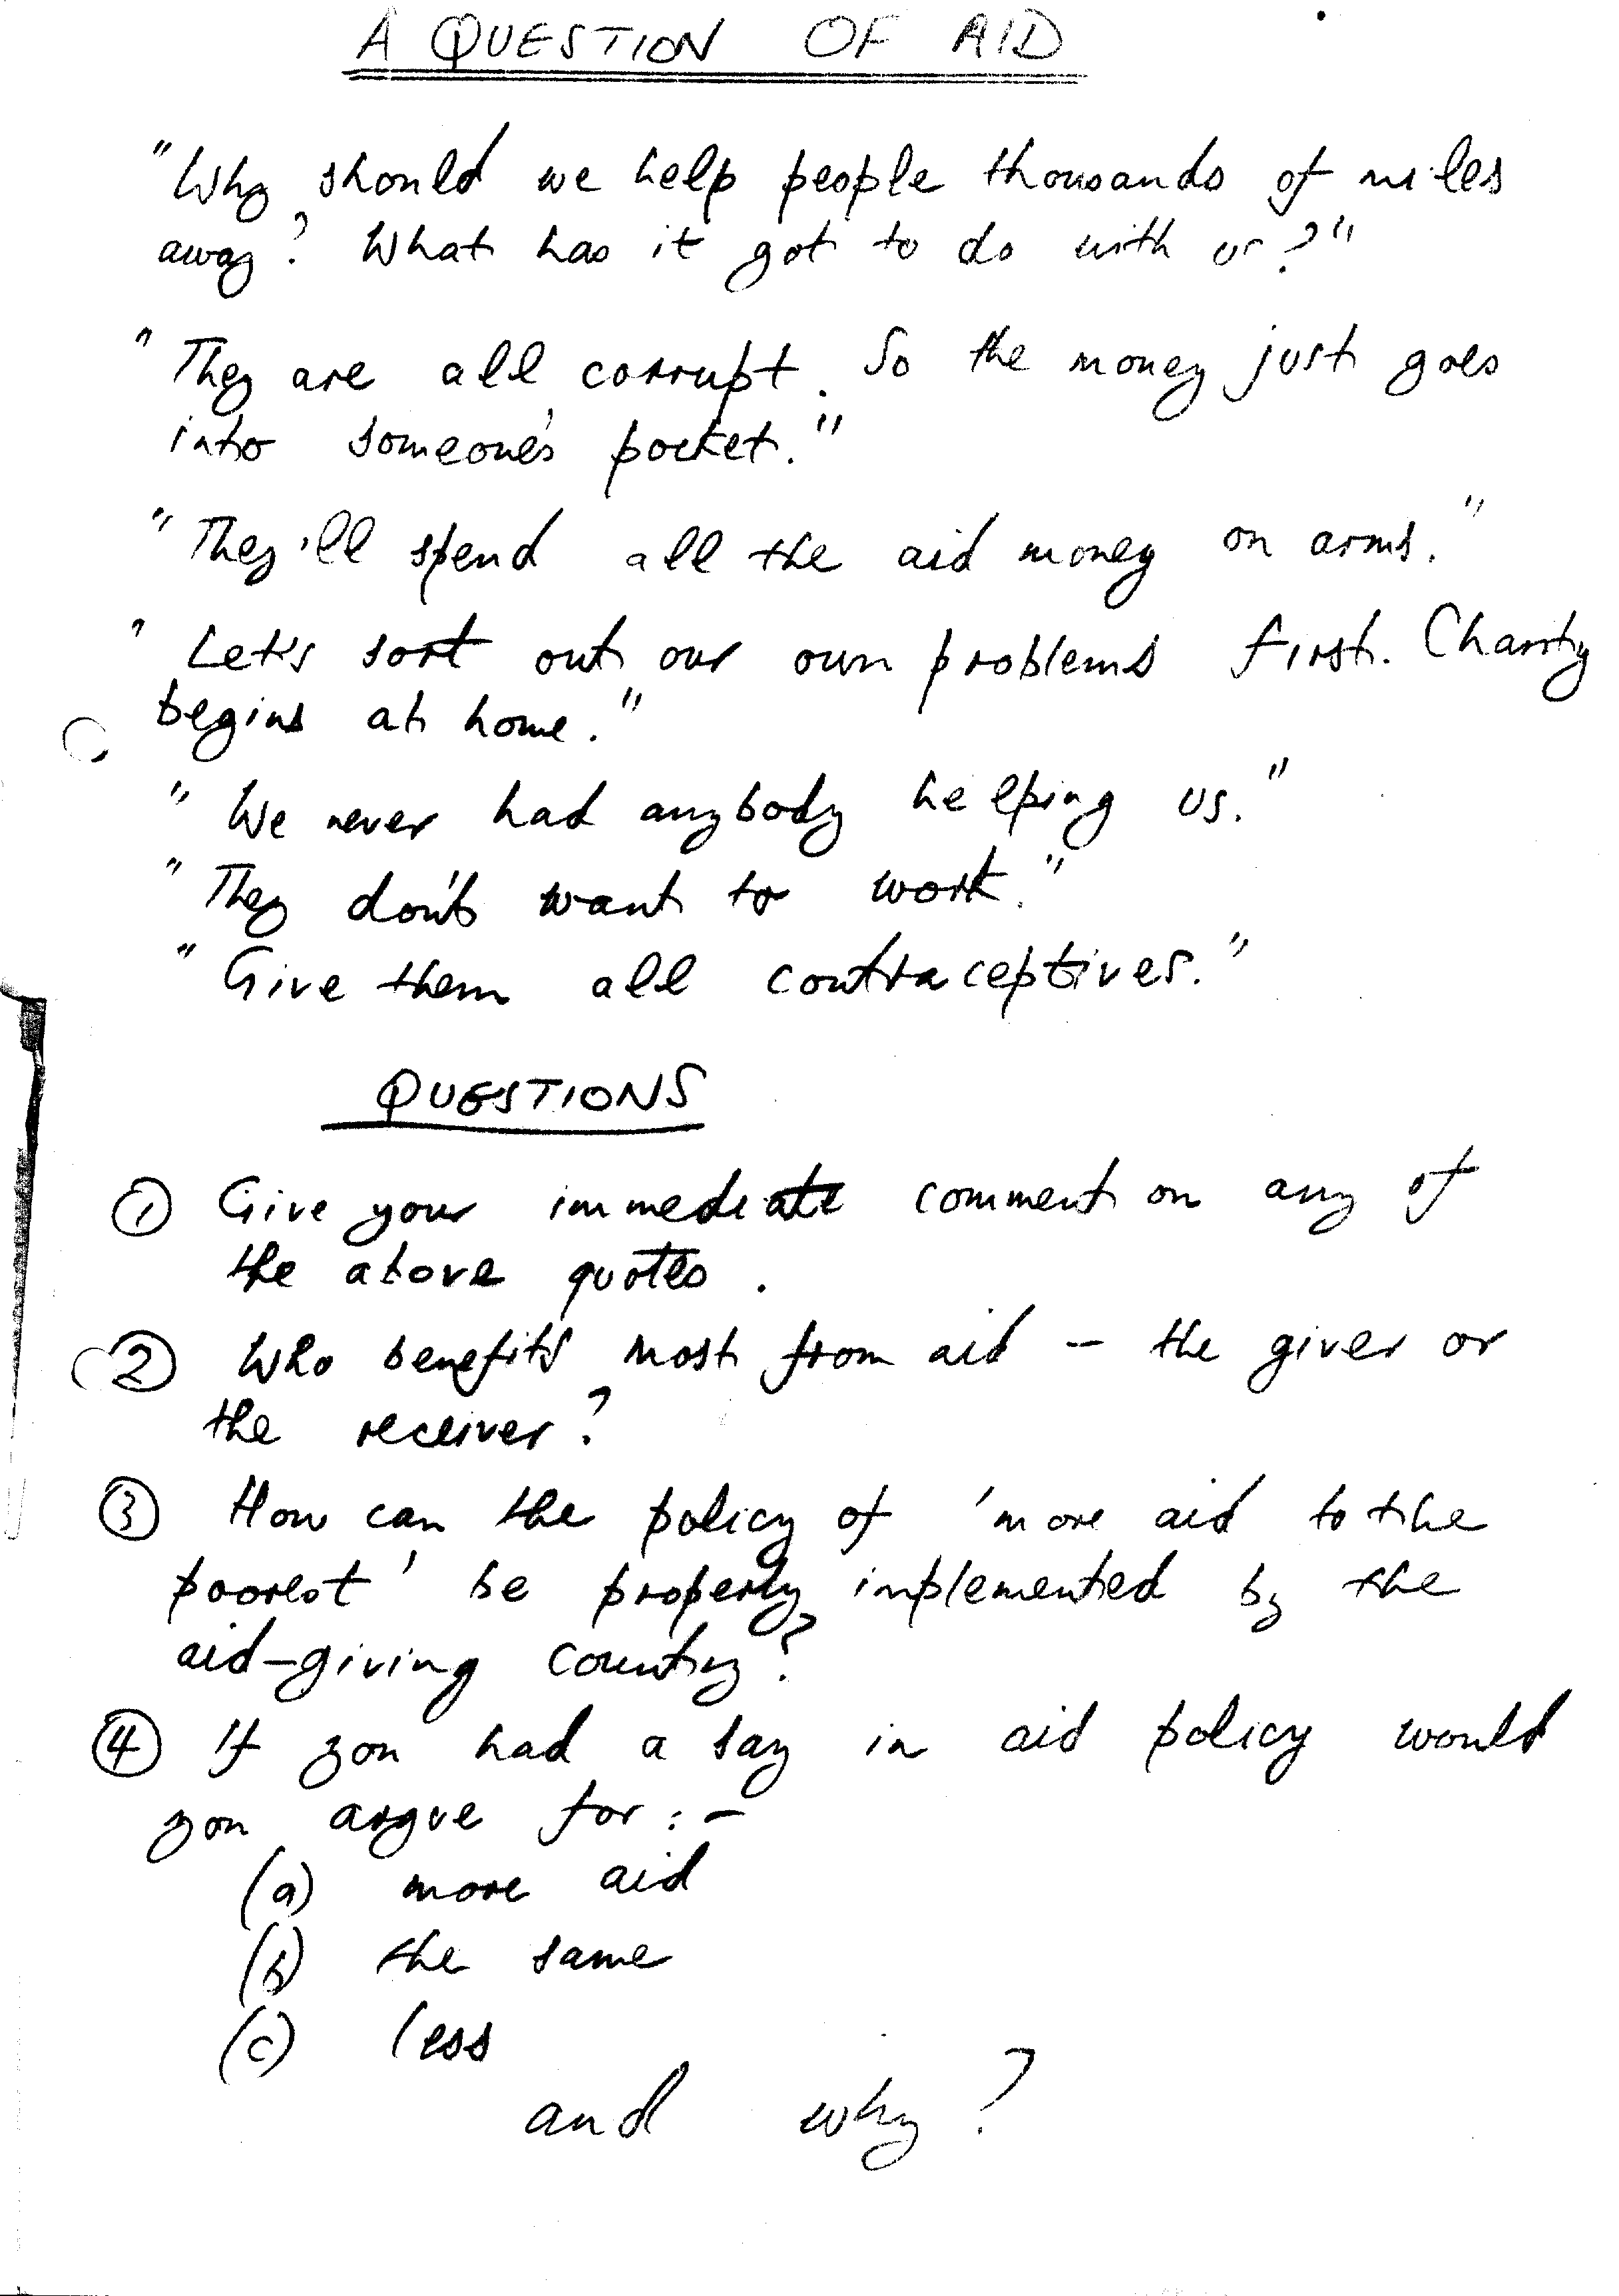 A QUESTION OF AID
"Why should we help people thousands of miles
away? What has it got to do with us?"
"They are all corrupt. So the money just goes
into someone's pocket."
"They'll spend all the aid money on arms."
"Let's sort out our own problems first. Charity
begins at home."
"We never had anybody helping us."
"They don't want to work."
"Give them all contraceptives."
QUESTIONS
① Give your immediate comment on any of
the above quotes.
② Who benefits most from aid – the giver or
the receiver?
③ How can the policy of 'more aid to the
poorest' be properly implemented by the
aid-giving country?
④ If you had a say in aid policy would
you argue for :-
(a) more aid
(b) the same
(c) less
and why?